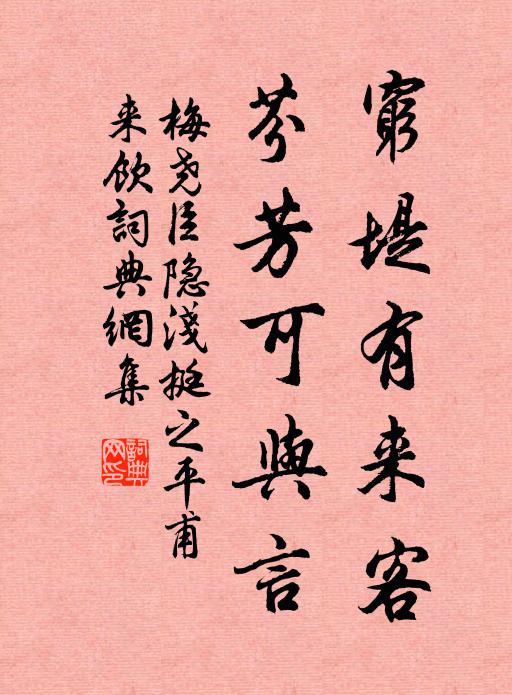 穷堤有来客
芬芳可與言
梅尧臣隐淺挺之平甫
来飲詞典網集
詞典网印